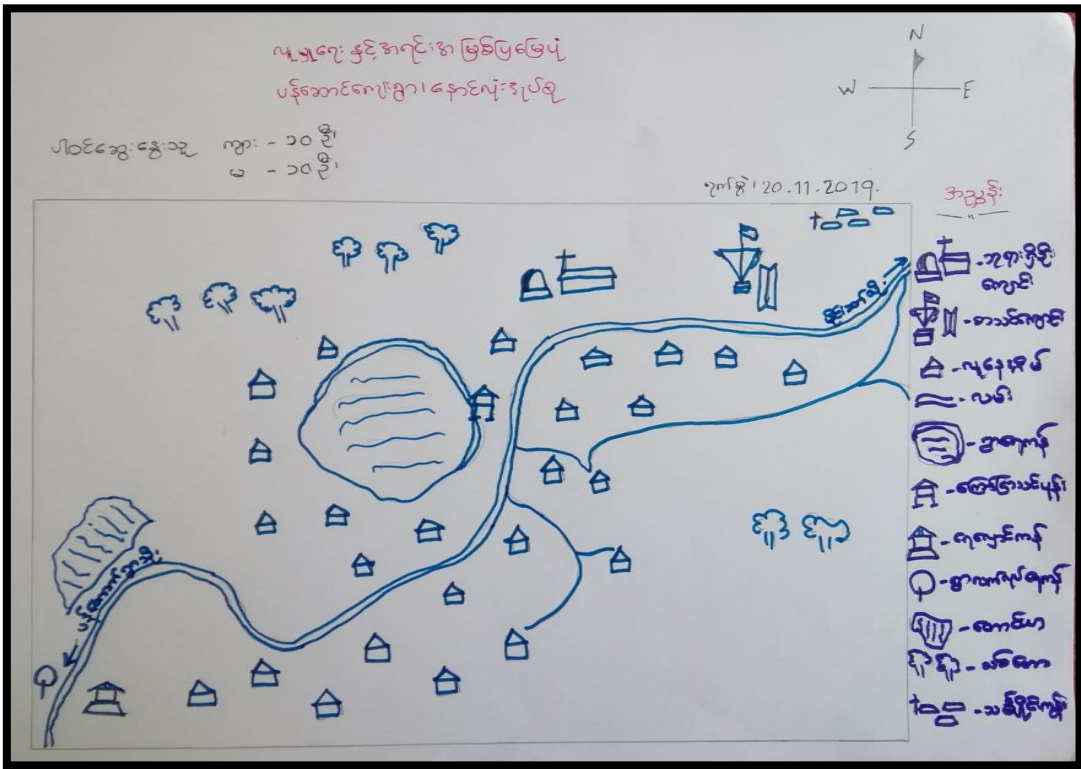 လူမှုရေး နှင့် အရင်းအမြစ်ပြမြေပုံ
ပန်ဆောင်ကျေးရွာ၊ နောင်လုံးအုပ်စု
N
W
E
S
ပါဝင်ဆွေးနွေးသူ ကျား - ၁၀ ဦး
မ - ၁၀ ဦး
ရက်စွဲ၊ 20.11.2019.
အညွှန်း
- ဘုရားရှိခိုး
ကျောင်း
- စာသင်ကျောင်း
- လူနေအိမ်
- လမ်း
- ရွာရေကန်
- ကြော်ငြာသင်ပုန်း
- ရေလှောင်ကန်
- တောင်ယာ
- သစ်တော
- သင်္ချိုင်းကုန်း